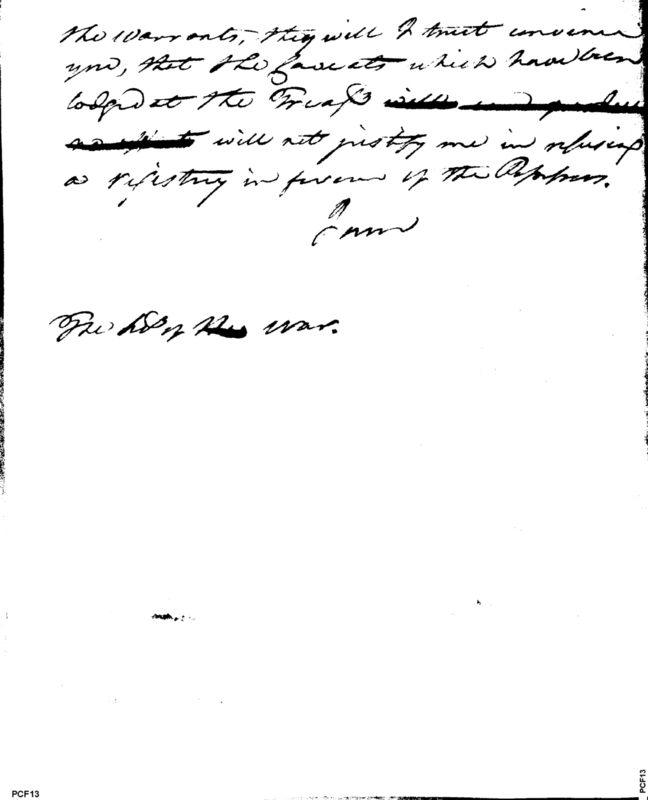 the warrants, they will I trust convince
you, that the Caveats which have been
lodged at the Treasy will
no effect will not justify me in refusing
a registry in favour of the Possessors.
I am
The Secy of the War.
PCF13
PCF13